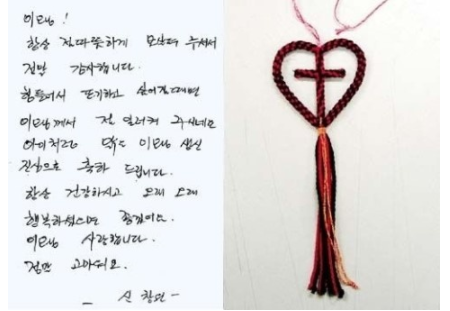 이모님!
항상 진따뜻하게 보살펴 주셔서
정말 감사합니다.
힘들어서 포기하고 싶어질때면
이모님께서 절 일러켜 주시네요
아이처럼 이모님 생신
진심으로 축하 드립니다.
항상 건강하시고 오래 오래
행복하셨으면 좋겠어요.
이모님 사랑합니다.
정말 고마워요.
- 신창원 -